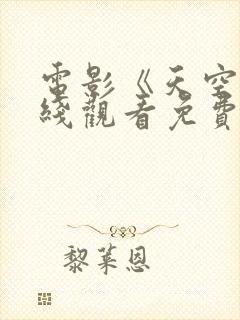 電影《天空
綫觀看免費
黎萊恩